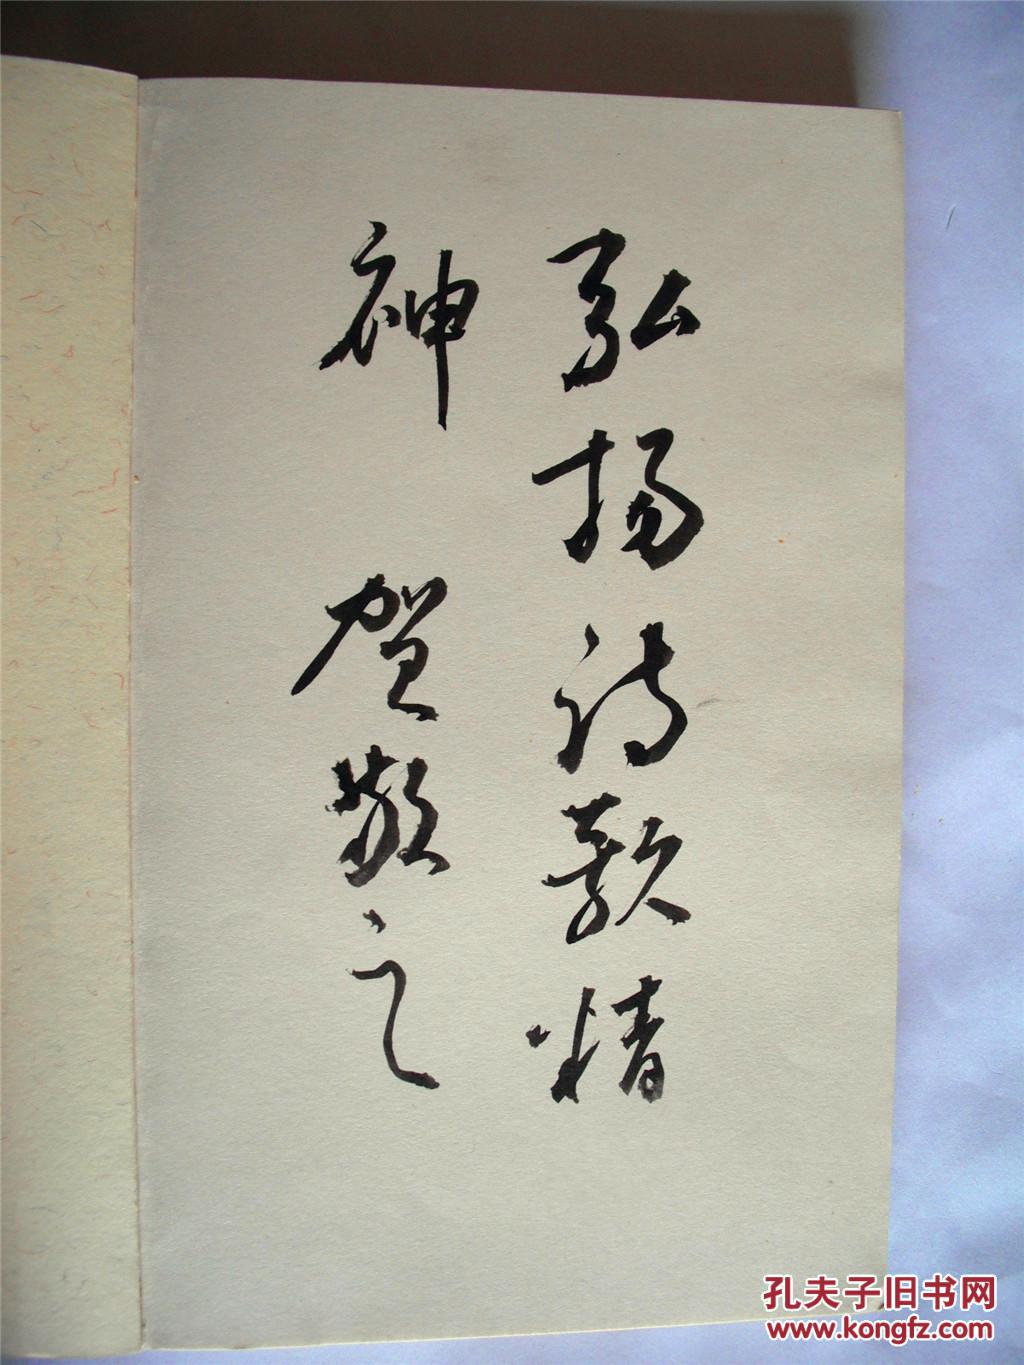 弘扬诗歌精
神 贺敬之
孔夫子旧书网
www.kongfz.com